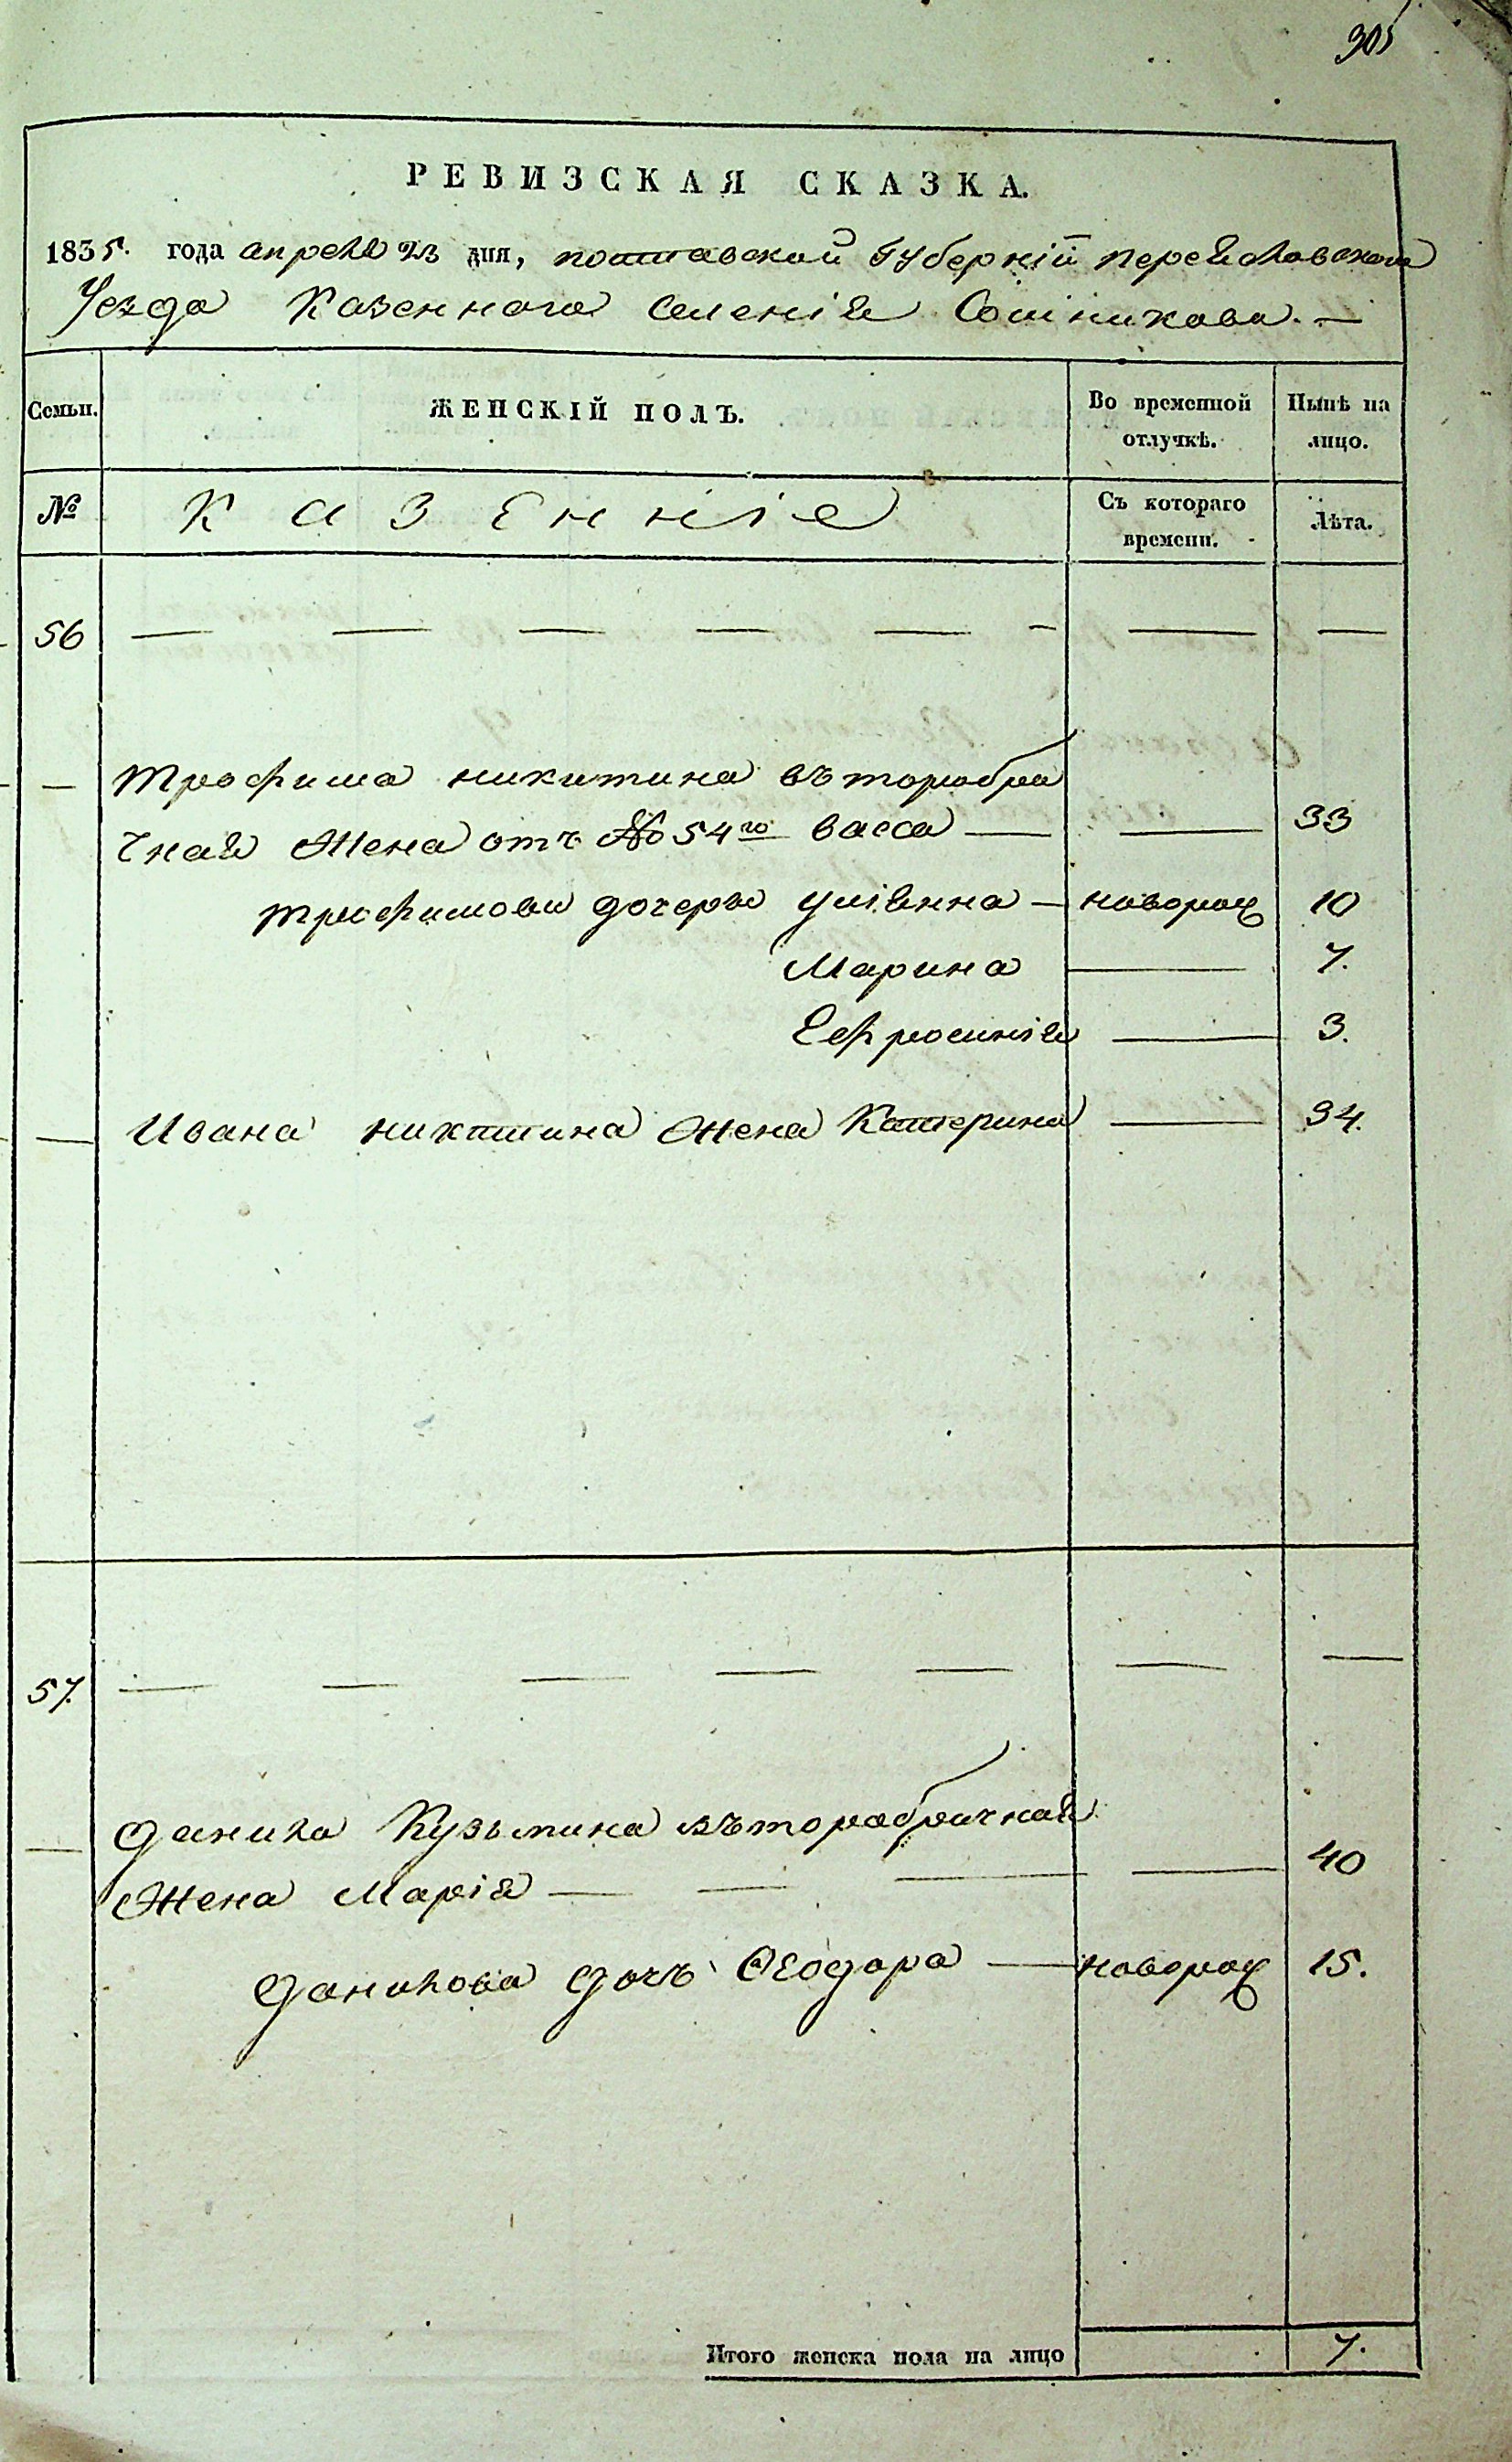 305
РЕВИЗСКАЯ СКАЗКА.
1835. года апреля 23 дня, полтавской Губерніи переяславскаго
Уезда Казенного Селенія Сошникова. —
Семьи. ЖЕНСКІЙ ПОЛЪ. Во временной отлучкѣ. Нынѣ на лицо.
№ Казенніе Съ котораго времени. Лѣта.
56 — — — — — — — —
— Трофима никитина въторобра
чная Жена отъ № 54го васса — — 33
трофимови дочеры уліянна — новорож 10
Марина — 7.
Ефросинія — 3.
— Ивана никитина Жена Катерина — 34.
57. — — — — — — —
— Данила Кузьмина въторобрачная
Жена Марія — — — — 40
Данилова дочъ Ѳеодора — новорож 15.
Итого женска пола на лицо 7.